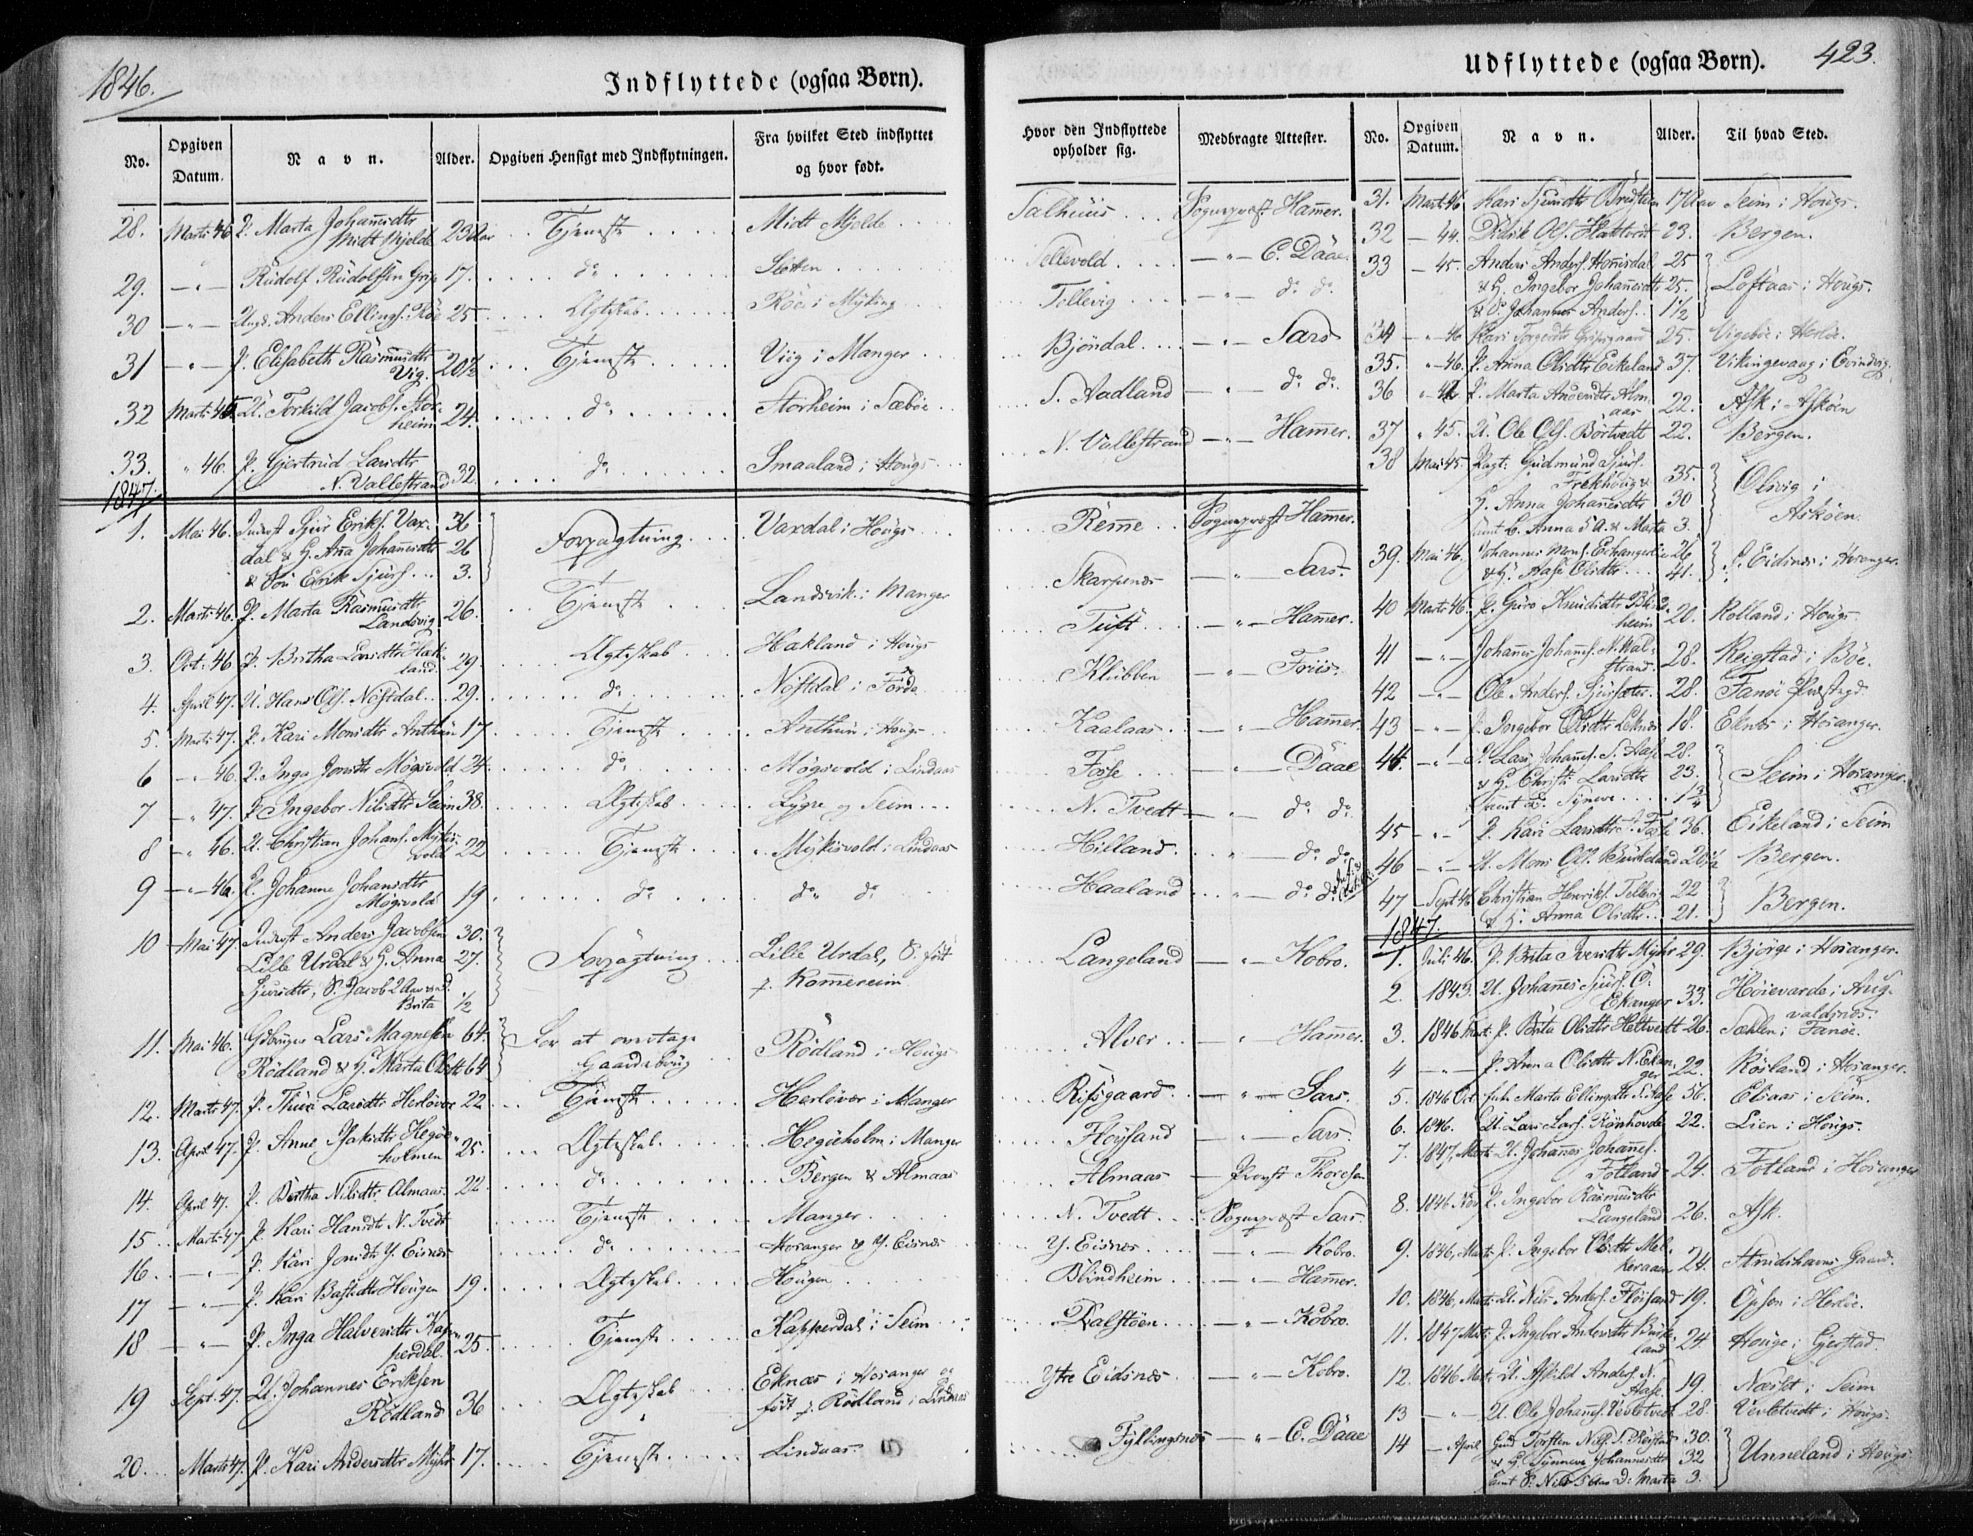 1846.
Indflyttede (ogsaa Børn).
No.
Opgiven Datum.
Navn.
Alder.
Opgiven Hensigt med Indflytningen.
Fra hvilket Sted indflyttet og hvor født.
Hvor den Indflyttede opholder sig.
Medbragte Attester.
28. Marts 46 P. Marta Johannesdtr Midt Mjelde 23 Aar Tjeneste Midt Mjelde Salhuus Sognepræst Hamer.
29. — " — Rudolf Rudolfsen Grip 17. do Sleten Tellevold — " — C. Daae.
30 — " — Ungk. Anders Ellings. Röe 25 Ægteskab Röe i Mjeling Tellevig — " — do do
31 — " — P. Elisabeth Rasmusdtr Vig. 20½ Tjeneste Viig i Manger Bjöndal — " — Sars
32 Marts 46 U. Torkild Jacobs. Storheim 24. do Storheim i Sæböe S. Aadland — " — do do
33. " 46. P. Gjertrud Larsdtr N. Vallestrand 32. do Smaaland i Hougs N. Vallestrand — " — Hamer.
1847.
1. Mai 46. Indrst Sjur Eriks. Vaxdal & H. Ana Johannesdtr & Sön Erik Sjurs. 36 26 3. Forpagtning Vaxdal i Hougs Remme Sognepræst Hamer.
2. Marts 46. P. Marta Rasmusdtr Landsvig 26. Tjeneste Landsvik i Manger Skarpenes — " — Sars.
3. Oct. 46 P. Britha Larsdtr Hakland. 29. Ægteskab Hakland i Hougs Tuft — " — Hamer.
4. April 47. U. Hans Ols. Nöstdal 29. do Nöstdal i Förde Klubben — " — Friis.
5. Marts 47. P. Kari Monsdtr Anthun 17 Tjeneste Anthun i Hougs Kaalaas " Hamer
6 — " 46. P. Inga Jonsdtr Mögsvold 24. do Mögsvold i Lindaas Fosse " Daae
7 — " 47. P. Ingebor Nilsdtr Seim 38. Ægteskab Lygre og Seim N. Tvedt — " do do
8 — " 46. U. Christian Johans. Mykisvold 22 Tjeneste Mykisvold i Lindaas Hilland " do do
9 — " — 46. P. Johanne Johansdtr Mogsvold 19 do do do Haaland " do do
10 Mai 47. Indrst Anders Jacobsen Lille Urdal & H. Anna Sjursdtr, S. Jacob 2 Aar & D. Brita 30. 27. ½ Forpagtning Lille Urdal, S. fött p. Rommereim Langeland — " — Kobro.
11. Mai 46. Gdbruger Lars Magnesen Rödland & H. Marta Olsdtr 64. 64 For at overtage Gaardsbrug Rödland i Hougs Alver " Hamer.
12. Marts 47. P. Thuri Larsdtr Herlöver 22 Tjeneste Herlöver i Manger Risgaard — " — Sars.
13. April 47. P. Anne Isaksdtr Hegöeholmen 25. Ægteskab Hegöeholm i Manger Flöysand — " Sars.
14. April 47. P. Bertha Nilsdtr Almaas 22. do Bergen & Almaas Almaas — Provst Thoresen
15 Marts 47 P. Kari Hansdtr N. Tvedt Tjeneste Manger N. Tvedt Sognepræst Sars.
16. — " — P. Kari Jonsdtr Y. Eisnes do Hosanger & Y. Eisnes Y. Eisnes — " — Kobro.
17 — " — P. Kari Bastiedtr Hougen 19. Ægteskab Hougen Blindheim — " — Hamer.
18 — " P. Inga Halversdtr Kapperdal. 25 Tjeneste Kapperdal i Seim Dalstöen — " — Kobro.
19 Sept. 47. U. Johannes Eriksen Rödland 36 Ægteskab Eknæs i Hosanger og födt p. Rödland i Lindaas Ytre Eidsnes — " — Kobro.
20. Marts 47. P. Kari Andersdtr Myhr 17. Tjeneste Lindaas Fyllingsnes — " — C. Daae
Udflyttede (ogsaa Børn).
423.
No.
Opgiven Datum.
Navn.
Alder.
Til hvad Sted.
31. Marts 46 Kari Sjursdtr 17 Aar Seim i Hougs.
32 — 44. Didrik Ols. Hattvedt 23. Bergen.
33 — 45. Anders Anders. & H. Ingebor Johannesdtr & S. Johannes Anders. 25 25. 1½ Loftaas i Hougs.
34 — " 46 Kari 25. Vigeböe i Herlöe.
35. " 46. P. Anna Olsdtr Eikeland 37. Vikingevaag i Evindvig.
36 " P. Marta Andersdtr Almaas 22. Ask i Asköen
37 " 45. U. Ole Ols. Börtvedt 22. Bergen.
38 Mai 45. Pagt. Gudmund Sjurs. H. Anna Johannesdtr samt D. Anna 5 A. & Marta 35. 30 3. Olsvig i Asköen.
39. Mai 46. Johannes Mons. & H. Aase Olsdtr 26 41. S. Eidsnes i Hosanger.
40 Marts 46. P. Guro Knudsdtr Blindheim 20. Rolland i Hougs.
41 — " — Johannes Johannes. N. Walstrand. 28. Reigstad i Böe.
42 — " — Ole Anders. Sjursæter 28. Fanöe Præstegd.
43 — " — P. Ingebor Olsdtr Leknes 18. Eknes i Hosanger.
44. — " Lars Johannes. S. Aase & H. Christi Larsdtr samt D. Synneve 28. 23. 1¾ Seim i Hosanger.
45 — " — P. Kari Larsdtr Fosse 36. Eikeland i Seim
46 — " — U. Mons Ols. Birkeland 20½ Bergen.
47 Sept 46 Christian Henriks. Tellevig & H. Anna Olsdtr 22 21. Bergen.
1847.
1. Juli 46. P. Brita Iversdtr Myhr 29. Bjørge i Hosanger.
2. 1843. U. Johannes Sjurs. Ö. Ekanger 33. Höievarde i Augvaldsnæs.
3. 1846 P. Brita Olsdtr Heltvedt 26. Sæhlen i Fanöe.
4 — " — P. Anna Olsdtr N. Ekanger 22. Rösland i Hosanger.
5. 1846 Oct. Enke Marta Ellingsdtr S. Aase 56. Elsaas i Seim.
6. 1846. U. Lars Lars. Rönhovde 22. Lien i Hougs.
7. 1847, Marts U. Johannes Johannes. Fotland 24. Fotland i Hosanger
8. 1846 Nov P. Ingebor Rasmusdtr Langeland 26. Ask.
9. 1846, Marts P. Ingebor Olsdtr Melkeraaen 24. Strudshavns Gaard.
10. 1846, Marts U. Nils Anders. Flöisand 19. Opson i Herlöe.
11. 1847 Marts P. Ingebor Andersdtr Birkeland 24 Houge i Gjerstad.
12. 1846 Mart. U. Askild Anders. N. Aase. 19. Næset i Seim
13 — " — U. Ole Johannes. Vevletvedt 28. Vevletvedt i Hougs.
14 — April Gmd Torsten Nils. S. Reistad & H. Synneve Johannesdtr samt S. Nils 5 Aar D. Marta 30. 32 3. Unneland i Hougs